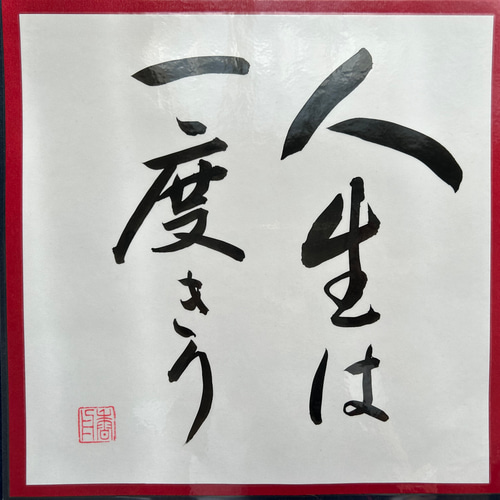 人生は
一度きり